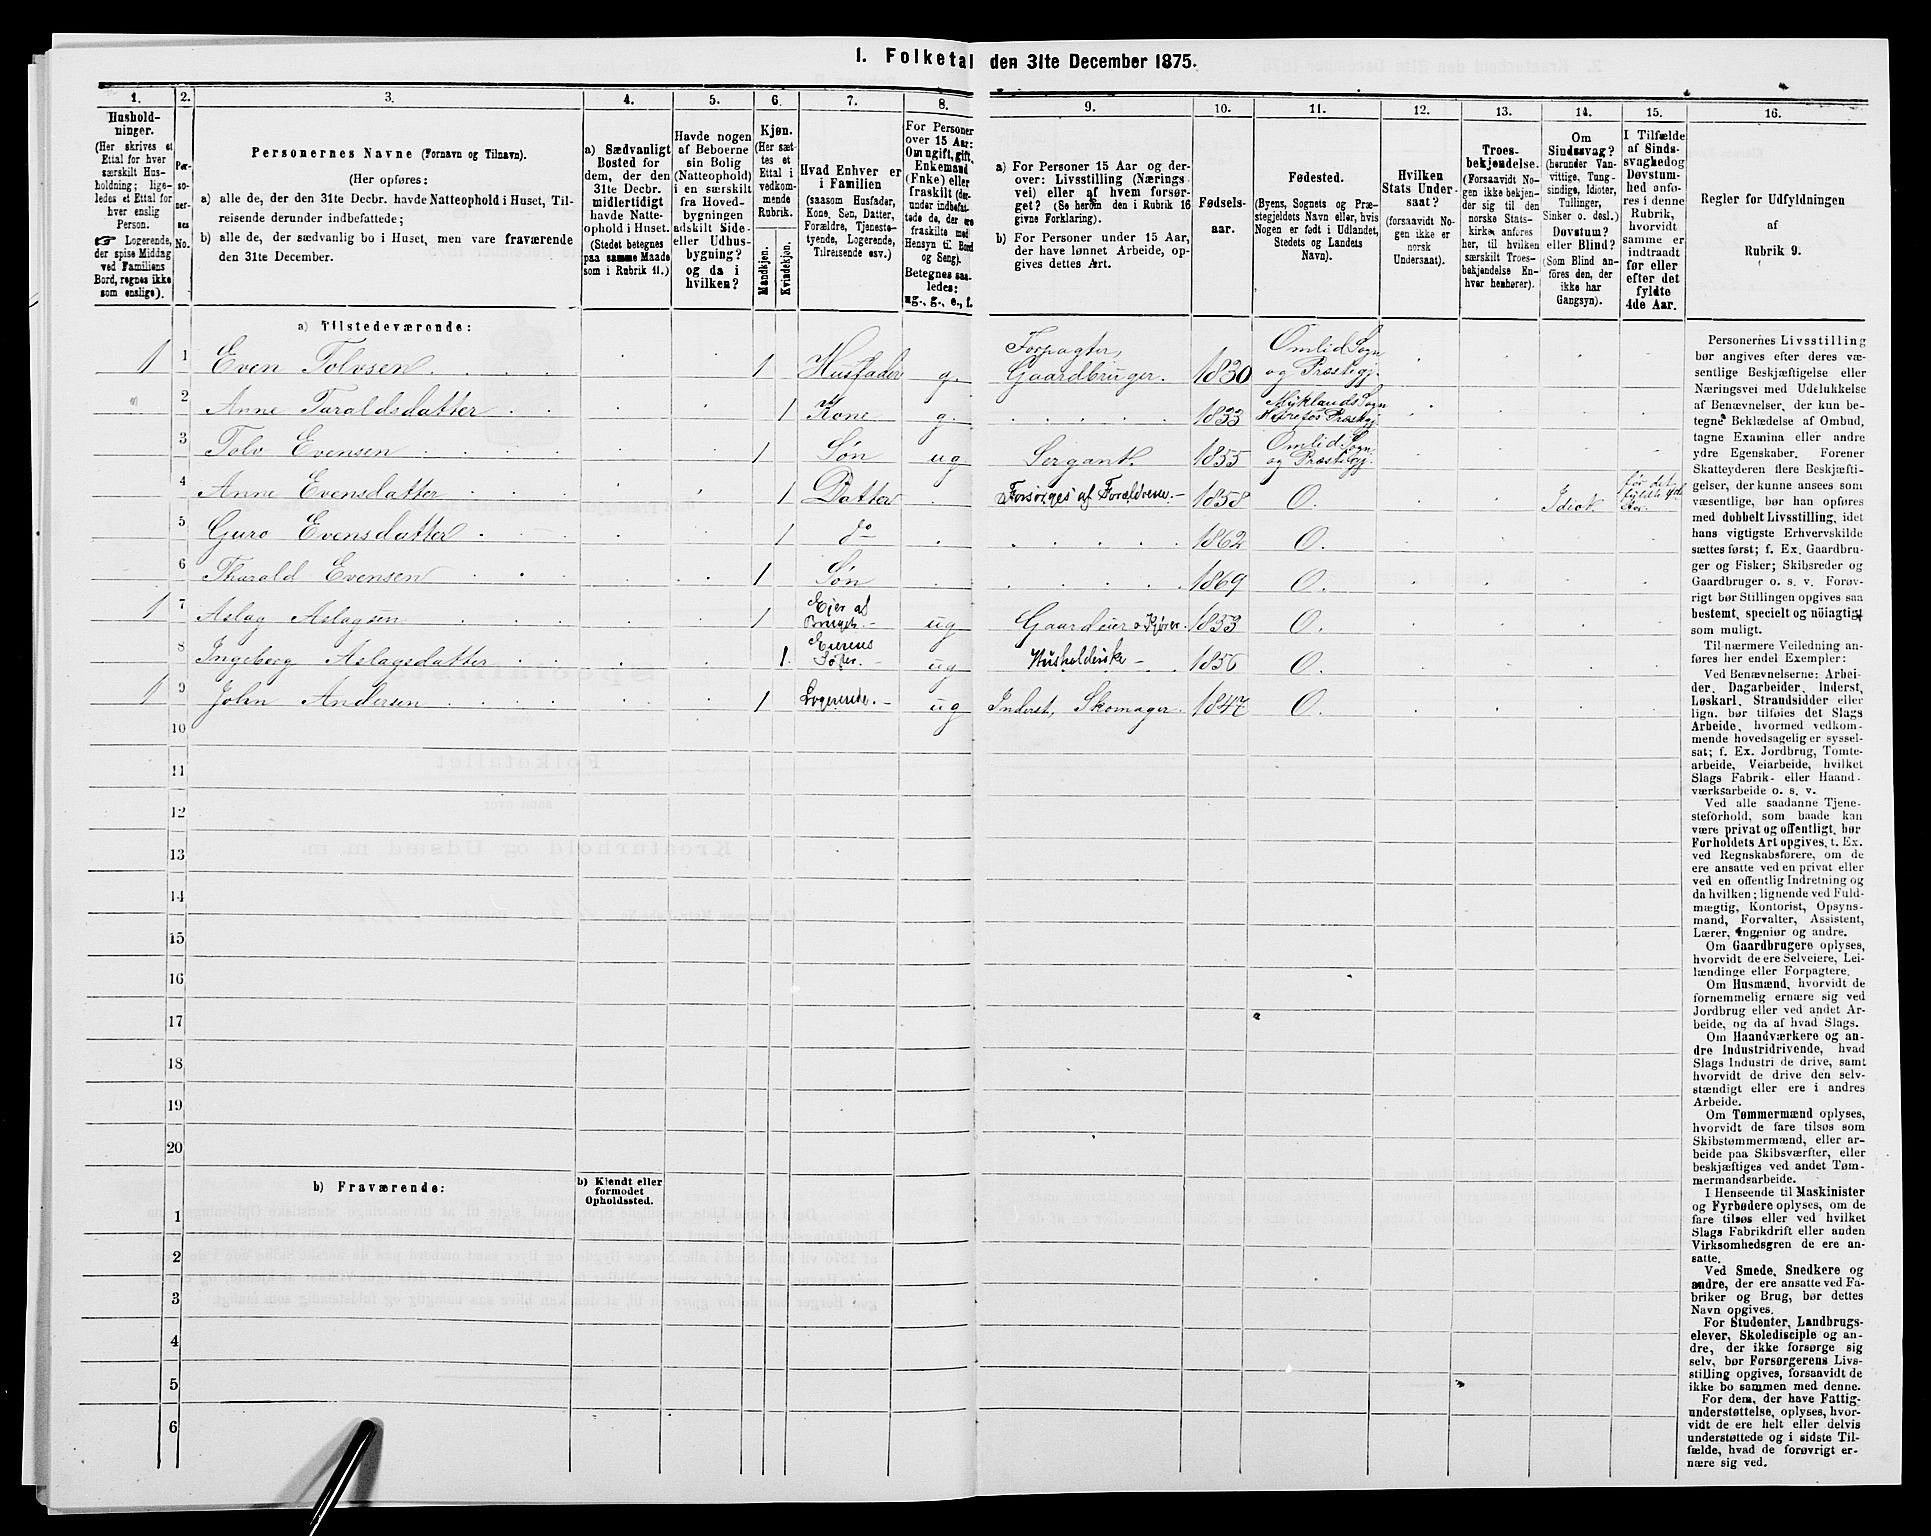 1. Folketal den 31te December 1875.
1.
2.
3.
4.
5.
6.
7.
8.
9.
10.
11.
12.
13.
14.
15.
16.
Hushold-
ninger.
(Her skrives et
Ettal for hver
særskilt Hus-
holdning; lige-
ledes et Ettal for
hver enslig
Person.
☞ Logerende,
der spise Middag
ved Familiens
Bord, regnes ikke
som enslige).
Per-
so-
ner-
nes
No.
Personernes Navne (Fornavn og Tilnavn).
(Her opføres:
a) alle de, der den 31te Decbr. havde Natteophold i Huset, Til-
reisende derunder indbefattede;
b) alle de, der sædvanlig bo i Huset, men vare fraværende
den 31te December.
a) Sædvanligt
Bosted for
dem, der den
31te Decbr.
midlertidigt
havde Natte-
ophold i Huset.
(Stedet betegnes
paa samme Maade
som i Rubrik 11.)
Havde nogen
af Beboerne
sin Bolig
(Natteophold)
i en særskilt
fra Hoved-
bygningen
adskilt Side-
eller Udhus-
bygning?
og da i
hvilken?
Kjøn.
(Her sæt-
tes et
Ettal i
vedkom-
mende
Rubrik.
Mandkjøn.
Kvindekjøn.
Hvad Enhver er
i Familien
(saasom Husfader,
Kone, Søn, Datter,
Forældre, Tjeneste-
tyende, Logerende,
Tilreisende osv.)
For Personer
over 15 Aar:
Om ugift, gift,
Enkemand
(Enke) eller
fraskilt (der-
under indbefat-
tede de, der ere
fraskilte med
Hensyn til Bord
og Seng).
Betegnes saa-
ledes:
ug., g., e., f.
a) For Personer 15 Aar og der-
over: Livsstilling (Nærings
vei) eller af hvem forsør-
get? (Se herom den i Rubrik 16
givne Forklaring).
b) For Personer under 15 Aar,
der have lønnet Arbeide, op-
gives dettes Art.
Fødsels-
aar.
Fødested.
(Byens, Sognets og Præ-
stegjeldets Navn eller, hvis
Nogen er født i Udlandet,
Stedets og Landets
Navn).
Hvilken
Stats Under-
saat?
(forsaavidt No-
gen ikke er
norsk
Undersaat).
Troes-
bekjendelse.
(Forsaavidt No-
gen ikke bekjen-
der sig til den
norske Stats-
kirke, anføres
her, til hvilken
særskilt Troes-
bekjendelse En-
hver henhører).
Om
Sindssvag?
(herunder Van-
vittige, Tung-
sindige, Idioter,
Tullinger,
Sinker o. desl.)
Døvstum?
eller Blind?
(Som Blind an-
føres den, der
ikke har
Gangsyn).
I Tilfælde
af Sinds-
svaghed og
Døvstum-
hed anfø-
res i denne
Rubrik,
hvorvidt
samme er
indtraadt
før eller
efter det
fyldte
4de Aar.
Regler for Udfyldningen
af
Rubrik 9.
a) Tilstedeværende:
1 1 Even Tolvsen 1 Husfader g. Forpagter, Gaardbruger. 1830 Omlid Sogn og Præstegj.
2 Anne Taraldsdatter 1 Kone g. 1833 Myklands Sogn Præstegj.
3 Tolv Evensen 1 Søn ug Sergant. 1855 Omlid Sogn og Præstegj.
4 Anne Evensdatter 1 Datter Forsørges af Forældrene.– 1858 O. Idiot før det fyldte 4de Aar.
5 Guro Evensdatter 1 do 1862 O.
6 Tharald Evensen 1 Søn 1869 O.
1 7 Aslag Aslagsen 1 Eier af Bruget.– ug Gaardeier o Kjører. 1853 O.
8 Ingeborg Aslagsdatter 1. Eierens Søster.– ug Husholderske– 1856 O.
1 9 John Andersen 1 Logerende.– ug Inderst, Skomager. 1847 O.
10
11
12
13
14
15
16
17
18
19
20
b) Fraværende:
b) Kjendt eller
formodet
Opholdssted.
1
2
3
4
5
6
Personernes Livsstilling
bør angives efter deres væ-
sentlige Beskjæftigelse eller
Næringsvei med Udelukkelse
af Benævnelser, der kun be-
tegne Beklædelse af Ombud,
tagne Examina eller andre
ydre Egenskaber. Forener
Skatteyderen flere Beskjæfti-
gelser, der kunne ansees som
væsentlige, bør han opføres
med dobbelt Livsstilling, idet
hans vigtigste Erhvervskilde
sættes først; f. Ex. Gaardbru-
ger og Fisker; Skibsreder og
Gaardbruger o. s. v. Forøv-
rigt bør Stillingen opgives saa
bestemt, specielt og nöiagtigt
som muligt.
Til nærmere Veiledning an-
føres her endel Exempler:
Ved Benævnelserne: Arbei-
der, Dagarbeider, Inderst,
Løskarl, Strandsidder eller
lign. bør tilføies det Slags
Arbeide, hvormed vedkom-
mende hovedsagelig er syssel-
sat; f. Ex. Jordbrug, Tomte-
arbeide, Veiarbeide, hvilket
Slags Fabrik- eller Haand-
værksarbeide o. s. v.
Ved alle saadanne Tjene-
steforhold, som baade kan
være privat og offentligt, bør
Forholdets Art opgives, t. Ex.
ved Regnskabsførere, om de
ere ansatte ved en privat eller
ved en offentlig Indretning og
da hvilken; lignende ved Fuld-
mægtig, Kontorist, Opsyns-
mand, Forvalter, Assistent,
Lærer, Ingeniør og andre.
Om Gaardbrugere oplyses,
hvorvidt de ere Selveiere, Lei-
lændinge eller Forpagtere.
Om Husmænd, hvorvidt de
fornemmelig ernære sig ved
Jordbrug eller ved andet Ar-
beide, og da af hvad Slags.
Om Haandværkere og an-
dre Industridrivende, hvad
Slags Industri de drive, samt
hvorvidt de drive den selv-
stændigt eller ere i andres
Arbeide.
Om Tømmermænd oplyses,
hvorvidt de fare tilsøs som
Skibstømmermænd, eller ar-
beide paa Skibsværfter, eller
beskjæftiges ved andet Tøm-
mermandsarbeide.
I Henseende til Maskinister
og Fyrbødere oplyses, om de
fare tilsøs eller ved hvilket
Slags Fabrikdrift eller anden
Virksomhedsgren de ere an-
satte.
Ved Smede, Snedkere og
andre, der ere ansatte ved Fa-
briker og Brug, bør dettes
Navn opgives.
For Studenter, Landbrugs-
elever, Skoledisciple og an-
dre, der ikke forsørge sig
selv, bør Forsørgerens Livs-
stilling opgives, forsaavidt de
ikke bo sammen med denne.
For dem, der have Fattig-
understøttelse, oplyses, hvor-
vidt de ere helt eller delvis
understøttede og i sidste Til-
fælde, hvad de forøvrigt er-
nære sig ved.